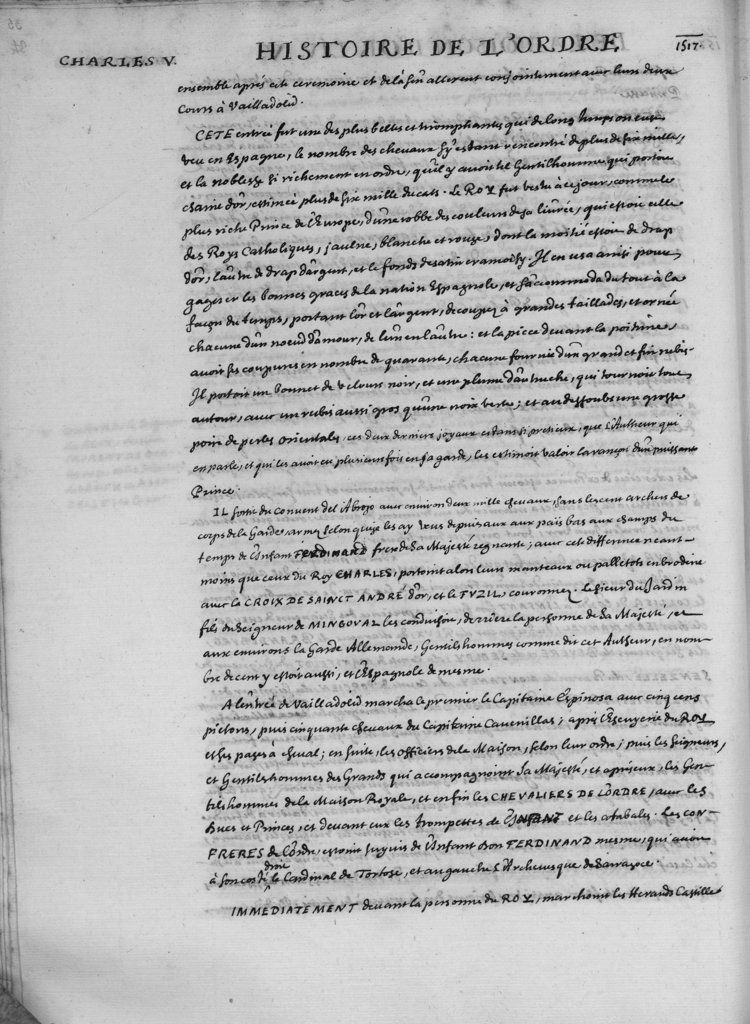 CHARLES V. HISTOIRE DE L'ORDRE 1517
ensemble aprés cete ceremonie et de là s'en allerent conjointement avec leurs deux
Cours à Vailladolid.
CETE entrée fut une des plus belles et triomphantes qui de long temps on eust
veu en Espagne, le nombre des chevaux s'y estant rencontré de plus de six mille,
et la noblesse si richement en ordre, qu'il y avoit tel Gentilhomme qui portoit
chaine d'or, estimée plus de six mille ducats. Le ROY fut vestu à ce jour, comme le
plus riche Prince de l'Europe, d'une robbe des couleurs de sa livrée, qui estoit celle
des Roys Catholiques, jaulne, blanche et rouge, dont la moitié estoit de drap
d'or, l'autre de drap d'argent, et le fonds de satin cramoisy. Il en usa ainsi pour
gagner les bonnes graces de la nation Espagnole, et s'accommoda du tout à la
façon du temps, portant l'or et l'argent, decoupez à grandes taillades, et ornée
chacune d'un noeud d'amour, de l'un en l'autre: et la piece devant la poitrine
avoit ses coupures en nombre de quarante, chacune fournie d'un grand et fin rubis.
Il portoit un bonnet de velours noir, et une plume d'autruche, qui tournoit tout
autour, avec un rubis aussi gros qu'une noix verte; et au dessoubs une grosse
poire de perles orientales, ces deux derniers joyaux estans si precieux, que l'Autheur qui
en parle, et qui les avoit eu plusieurs fois en sa garde, les estimoit valoir la rançon d'un puissant
Prince.
IL sortit du convent del Abrojo avec environ deux mille chevaux, sans les cent archers de
corps de la Garde, armez selon que je les ay veus depuis aux aux païs bas aux champs du
temps de l'Infant FERDINAND frere de sa Majesté regnante; avec cet difference neant-
moins que ceux du Roy CHARLES, portoint alors leurs manteaux ou palletots en broderie
avec la CROIX DE SAINCT ANDRÉ d'or, et le FUZIL couronnez. Le Sieur du Jardin
fils du Seigneur de MINGOVAL les conduisoit, derriere la personne de Sa Majesté, et
aux environs la Garde Allemande, Gentilshommes comme dit cet Autheur, en nom-
bre de cent y estoit aussi, et l'Espagnole de mesme.
A l'entrée de Vailladolid marcha le premier le Capitaine Espinosa avec cinq cens
pietons, puis cinquante chevaux du Capitaine Cauenillas; aprés l'Escuyerie du ROY
et ses pages à cheval; en suite, les officiers de la Maison, selon leur ordre, puis les Seigneurs,
et Gentilshommes des Grands qui accompagnoint Sa Majesté, et aprés eux, les Gen-
tilshommes de la Maison Royale, et en fin les CHEVALIERS DE L'ORDRE, avec les
Ducs et Princes, et devant eux les trompettes de l'INFANT et les atabales. Les CON-
FRERES de l'Ordre, estoint suyvis de l'Infant Don FERDINAND mesme, qui avoit
à son costé droit le Cardinal de Tortose, et au gauche l'Archevesque de Sarragoce.
IMMEDIATEMENT devant la personne du ROY, marchoint les Herauds Castille